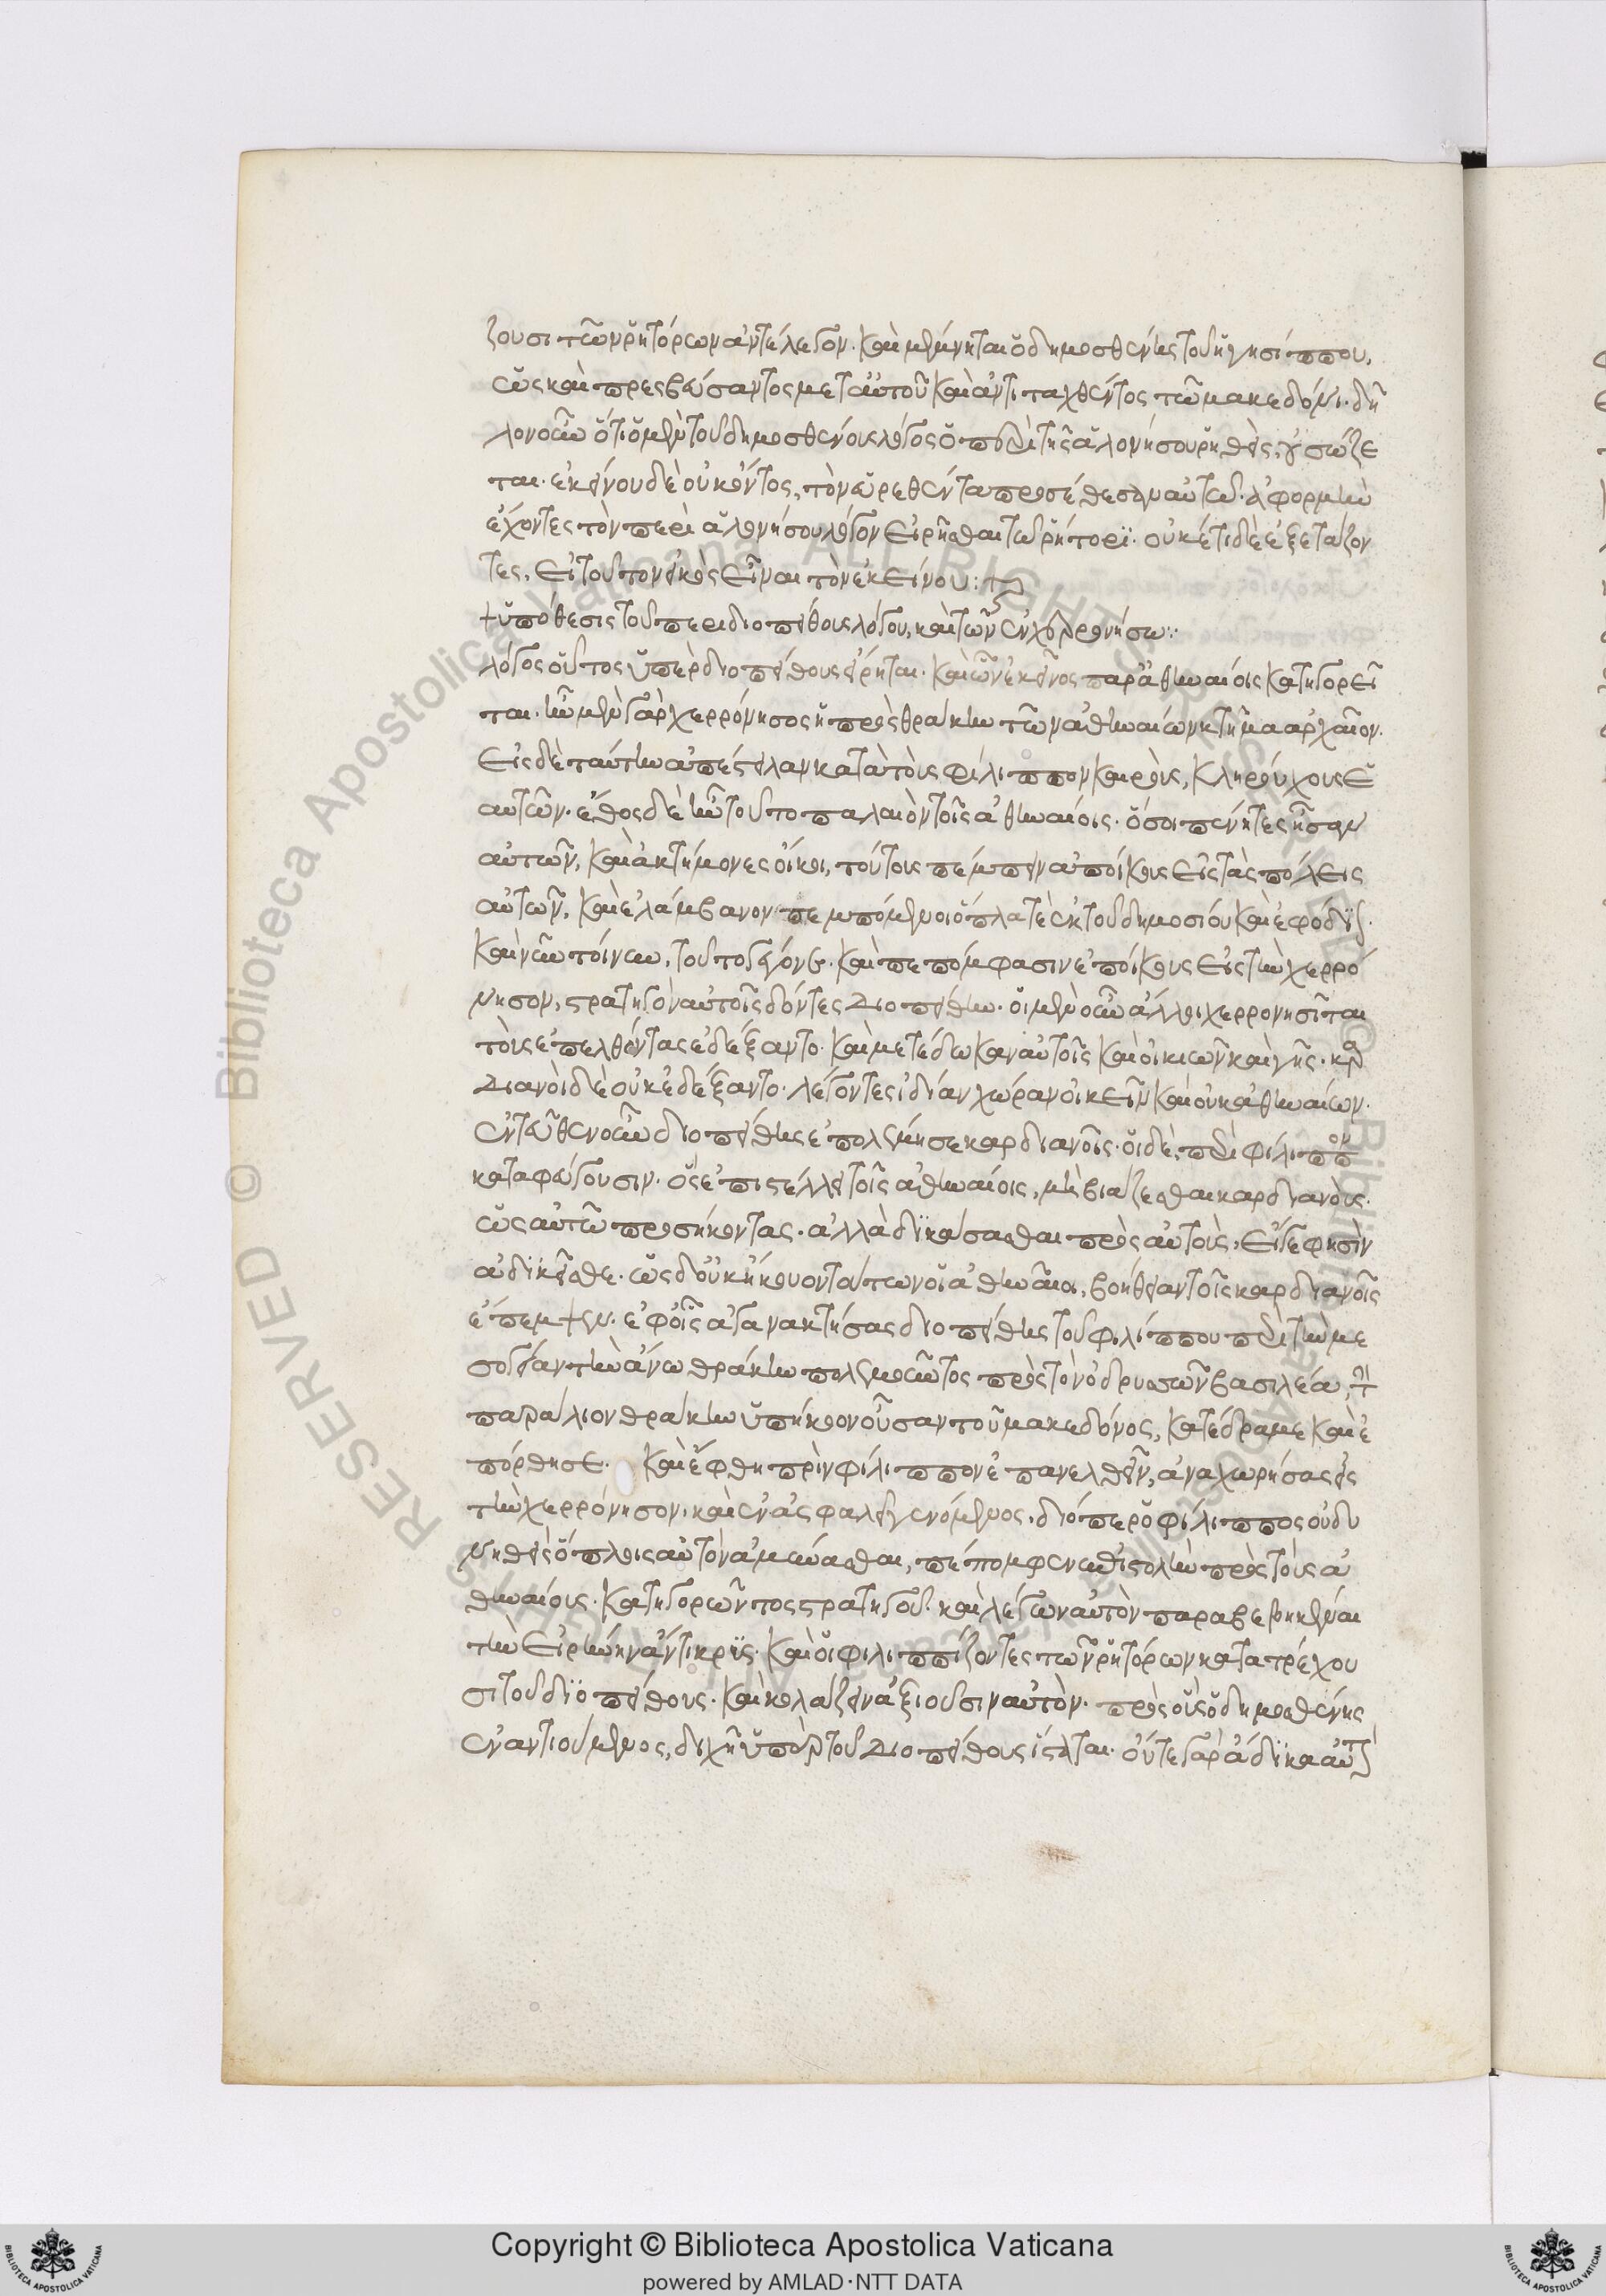 ζουσι τῶν ῥητόρων ἀντέλεγον. καὶ μέμνηται ὁ δημοσθένης τοῦ ἡγησίππου,
ὡς καὶ πρεσβεύσαντος μετ' αὐτοῦ καὶ ἀντιταχθέντος τῶ μακεδόνι. δῆ
λον οὖν ὅτι ὁ μὲν τοῦ δημοσθένους λόγος ὁ περὶ τῆς ἁλονήσου ῥηθεὶς, οὐ σώζε
ται. ἐκείνου δὲ οὐκ ὄντος, τὸν εὑρεθέντα προσέθεσαν αὐτῶ. ἀφορμὴν
ἔχοντες τὸν περὶ ἁλονήσου λόγον εἰρῆσθαι τῶ ῥήτορι. οὐκέτι δὲ ἐξετάζον
τες, εἰ τοῦτον εἰκὸς εἶναι τὸν ἐκείνου:
+ ὑπόθεσις τοῦ περὶ διοπείθους λόγου, καὶ τῶν ἐν χερρονήσω:
λόγος οὗτος ὑπὲρ διοπείθους εἴρηται. καὶ ὧν ἐκεῖνος παρ' ἀθηναίοις κατηγορεῖ
ται. ἦν μὲν γὰρ χερρόνησος ἡ πρὸς θράκην τῶν ἀθηναίων κτῆμα ἀρχαῖον.
εἰς δὲ ταύτην ἀπέστειλαν κατὰ τοὺς φίλιππον καιροὺς, κληρούχους ἑ
αυτῶν. ἔθος δὲ ἦν τοῦτο παλαιὸν τοῖς ἀθηναίοις. ὅσοι πένητες ἦσαν
αὐτῶν, καὶ ἀκτήμονες οἴκοι, τούτους πέμπειν ἀποίκους εἰς τὰς πόλεις
αὐτῶν, καὶ ἐλάμβανον πεμπόμενοι ὅπλα τὲ ἐκ τοῦ δημοσίου καὶ ἐφόδιον.
καὶ νῦν τοίνυν, τοῦτο γέγονε. καὶ πεπόμφασιν ἐποίκους εἰς τὴν χερρό
νησον, στρατηγὸν αὐτοῖς δόντες διοπείθην. οἱ μὲν οὖν ἄλλοι χερρονησῖται
τοὺς ἐπελθόντας ἐδέξαντο. καὶ μετέδωκαν αὐτοῖς καὶ οἰκιῶν καὶ γῆς. καρ
διανοὶ δὲ οὐκ ἐδέξαντο. λέγοντες ἰδίαν χώραν οἰκεῖν καὶ οὐκ ἀθηναίων.
ἐντεῦθεν οὖν διοπείθης ἐπολέμησε καρδιανοῖς. οἱ δὲ, ἐπὶ φίλιππον
καταφεύγουσιν. ὃς ἐπιστέλλει τοῖς ἀθηναίοις, μὴ βιάζεσθαι καρδιανοὺς.
ὡς αὐτῶ προσήκοντας. ἀλλὰ δικάσασθαι πρὸς αὐτοὺς, εἴ τέ φησιν
ἀδικεῖσθε. ὡς δ' οὐκ ἤκουον τούτων οἱ ἀθηναῖοι, βοήθειαν τοῖς καρδιανοῖς
ἔπεμψεν. ἐφ' οἷς ἀγανακτήσας διοπείθης τοῦ φιλίππου περὶ τὴν με
σογείαν τὴν ἄνω θράκην πολεμοῦντος πρὸς τὸν ὀδρυσῶν βασιλέα, τὴν
παράλιον θράκην ὑπήκοον οὖσαν τοῦ μακεδόνος, κατέδραμε καὶ ἐ
πόρθησε. καὶ ἔφθη πρὶν φίλιππον ἐπανελθεῖν, ἀναχωρήσας εἰς
τὴν χερρόνησον. καὶ ἐν ἀσφαλεῖ γενόμενος. διόπερ ὁ φίλιππος οὐ δυ
νηθεὶς ὅπλοις αὐτὸν ἀμύνασθαι, πέπομφεν ἐπιστολὴν πρὸς τοὺς ἀ
θηναίους. κατηγορῶν τοῦ στρατηγοῦ. καὶ λέγων αὐτὸν παραβεβηκέναι
τὴν εἰρήνην ἄντικρυς. καὶ οἱ φιλιππίζοντες τῶν ῥητόρων κατατρέχου
σι τοῦ διοπείθους. καὶ κολάζειν ἀξιοῦσιν αὐτὸν. πρὸς οὓς ὁ δημοσθένης
ἐναντιούμενος, διχῆ ὑπὲρ τοῦ διοπείθους ἵσταται. οὔτε γὰρ ἄδικα αὐτὸν